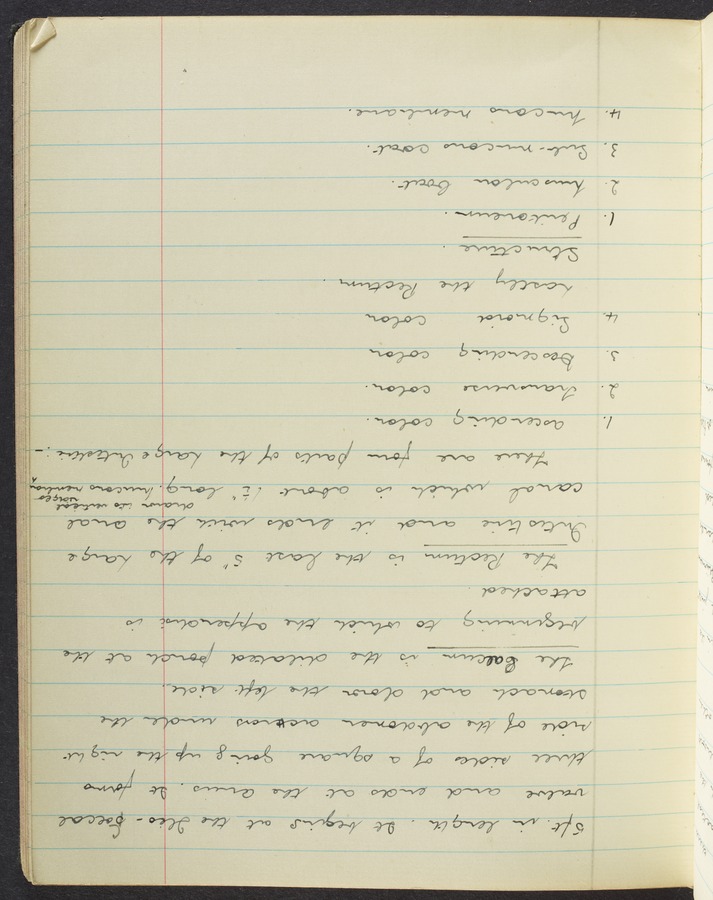 5ft. in length. It begins at the Ileo-Coecal
valve and ends at the anus. It forms
three sides of a square going up the right
side of the abdomen across under the
stomach and down the left side.
The Caecum is the dilated pouch at the
beginning to which the appendix is
attached.
The Rectum is the last 5" of the large
Intestine and it ends with the anal
canal which is about 1½" long. Mucous membrane
drawn into vertical
There are four parts of the large Intestine:-
1. ascending colon.
2. Transverse colon.
3. Descending colon
4. Sigmoid colon
Lastly the Rectum.
Structure.
1. Peritoneum.
2. Muscular Coat.
3. Sub-mucous coat.
4. Mucous membrane.